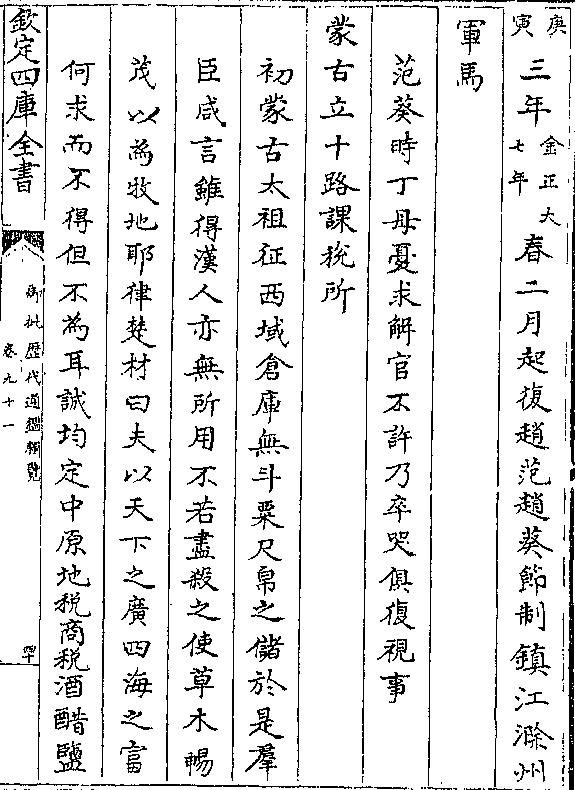 庚寅三年金正大七年春二月起復趙范趙葵節制鎮江滁州
軍馬
范葵時丁母憂求解官不許乃卒哭俱復視事
蒙古立十路課稅所
初蒙古太祖征西域倉庫無斗粟尺帛之儲於是羣
臣咸言雖得漢人亦無所用不若盡殺之使草木暢
茂以為牧地耶律楚材曰夫以天下之廣四海之富
何求而不得但不為耳誠均定中原地稅商稅酒醋鹽
欽定四庫全書
御批歷代通鑑輯覽
卷九十一
四十